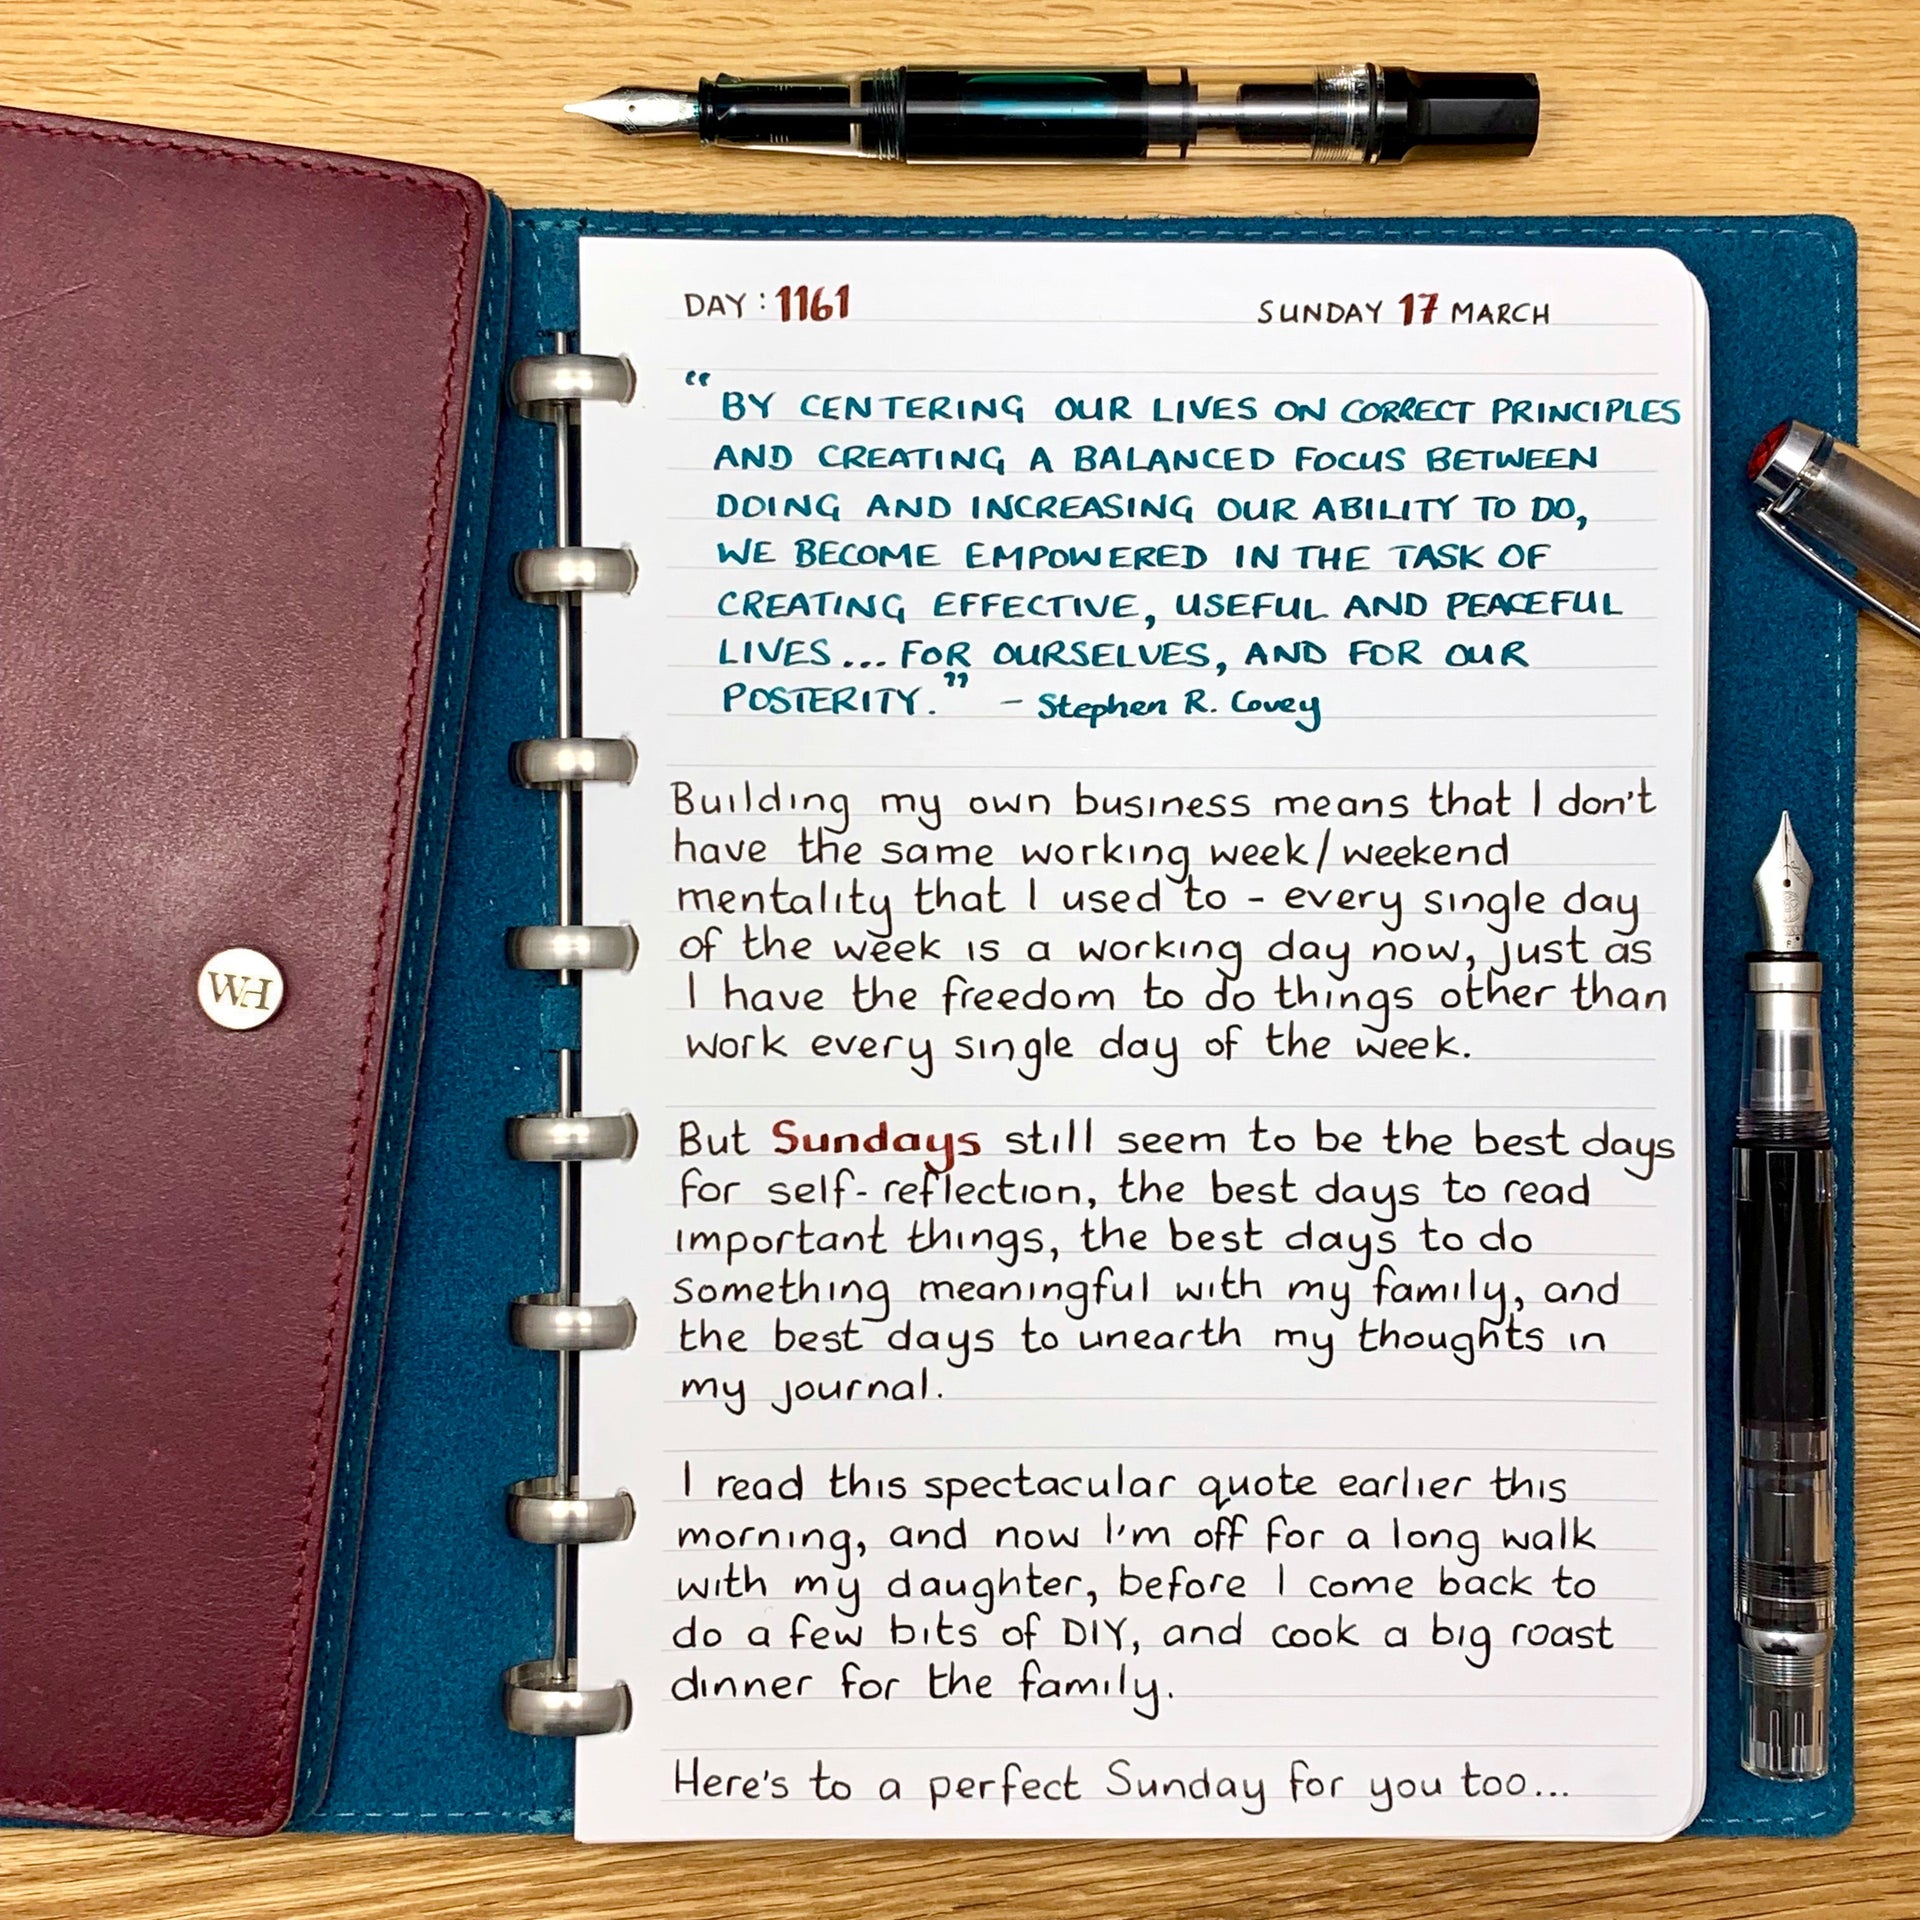 WH
DAY: 1161
SUNDAY 17 MARCH
“BY CENTERING OUR LIVES ON CORRECT PRINCIPLES
AND CREATING A BALANCED FOCUS BETWEEN
DOING AND INCREASING OUR ABILITY TO DO,
WE BECOME EMPOWERED IN THE TASK OF
CREATING EFFECTIVE, USEFUL AND PEACEFUL
LIVES... FOR OURSELVES, AND FOR OUR
POSTERITY.” - Stephen R. Covey
Building my own business means that I don't
have the same working week/weekend
mentality that I used to - every single day
of the week is a working day now, just as
I have the freedom to do things other than
work every single day of the week.
But Sundays still seem to be the best days
for self-reflection, the best days to read
important things, the best days to do
something meaningful with my family, and
the best days to unearth my thoughts in
my journal.
I read this spectacular quote earlier this
morning, and now I'm off for a long walk
with my daughter, before I come back to
do a few bits of DIY, and cook a big roast
dinner for the family.
Here's to a perfect Sunday for you too...